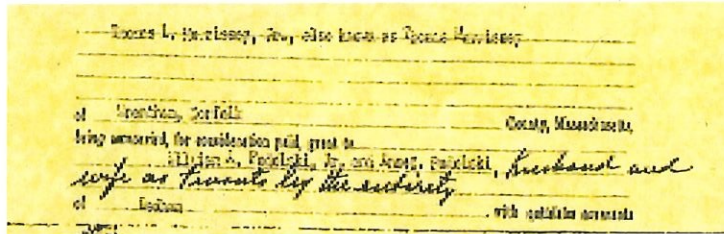 Thomas L. Morrissey, Jr., also known as Thomas Morrissey
of Wrentham, Norfolk County, Massachusetts,
being unmarried, for consideration paid, grant to
William A. Jr. and husband and
wife as tenants by the entirety
of Dedham with quitclaim covenants